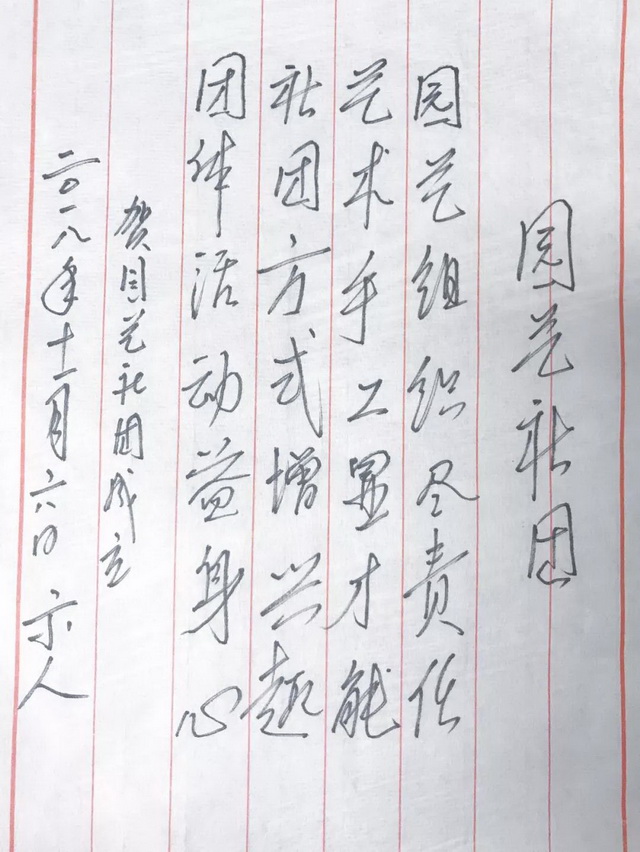 园艺社团
园艺组织尽责任
艺术手工显才能
社团方式增兴趣
团体活动益身心
贺园艺社团成立
二〇一八年十一月六日 示人